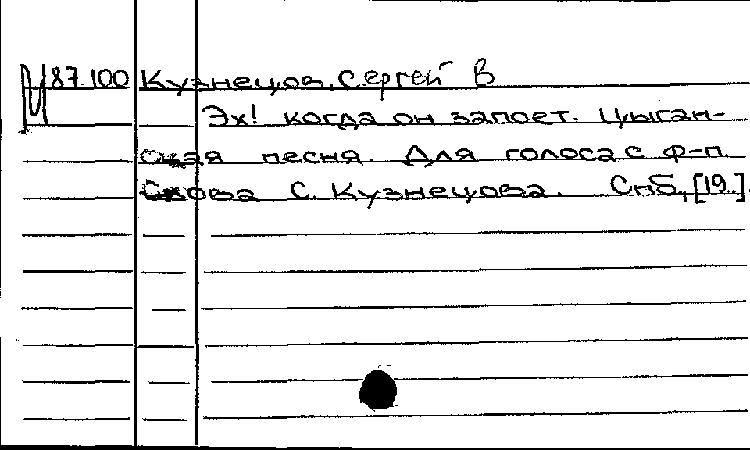 М87.100 Кузнецов, Сергей В
Эх! когда он запоет. Цыган-
ская песня. Для голоса с ф-п.
Слова С. Кузнецова. Спб, [19..].